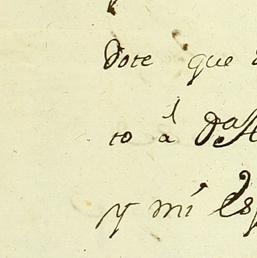 Dote que
to á
y mi